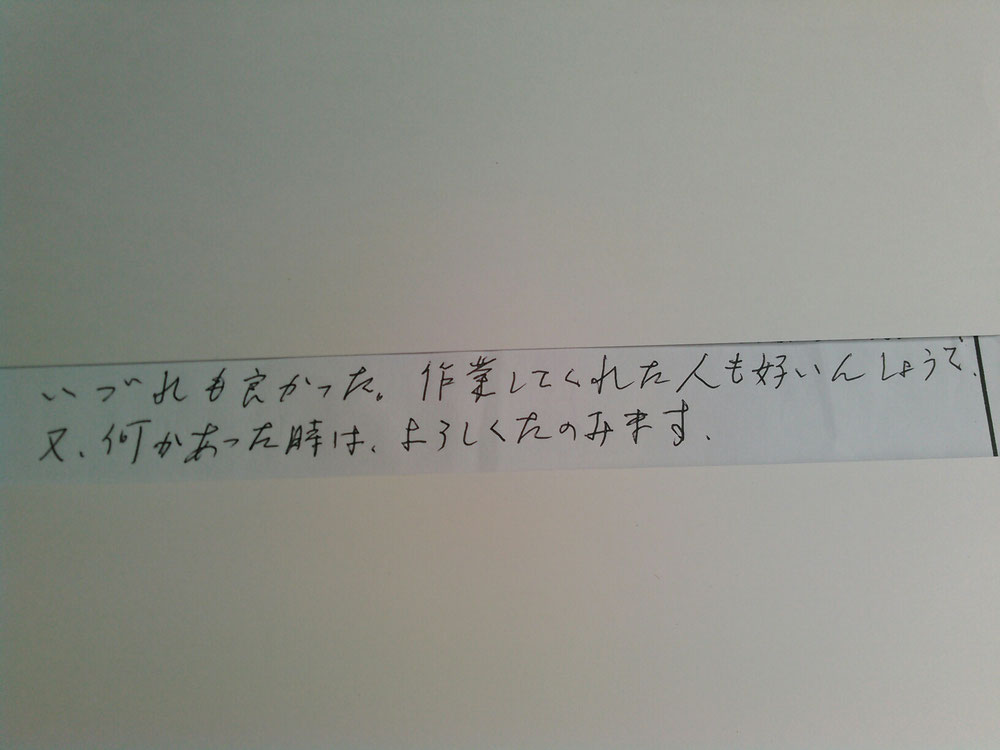 いづれも良かった。作業してくれた人も好いんしょうで、
又、何かあった時は、よろしくたのみます、